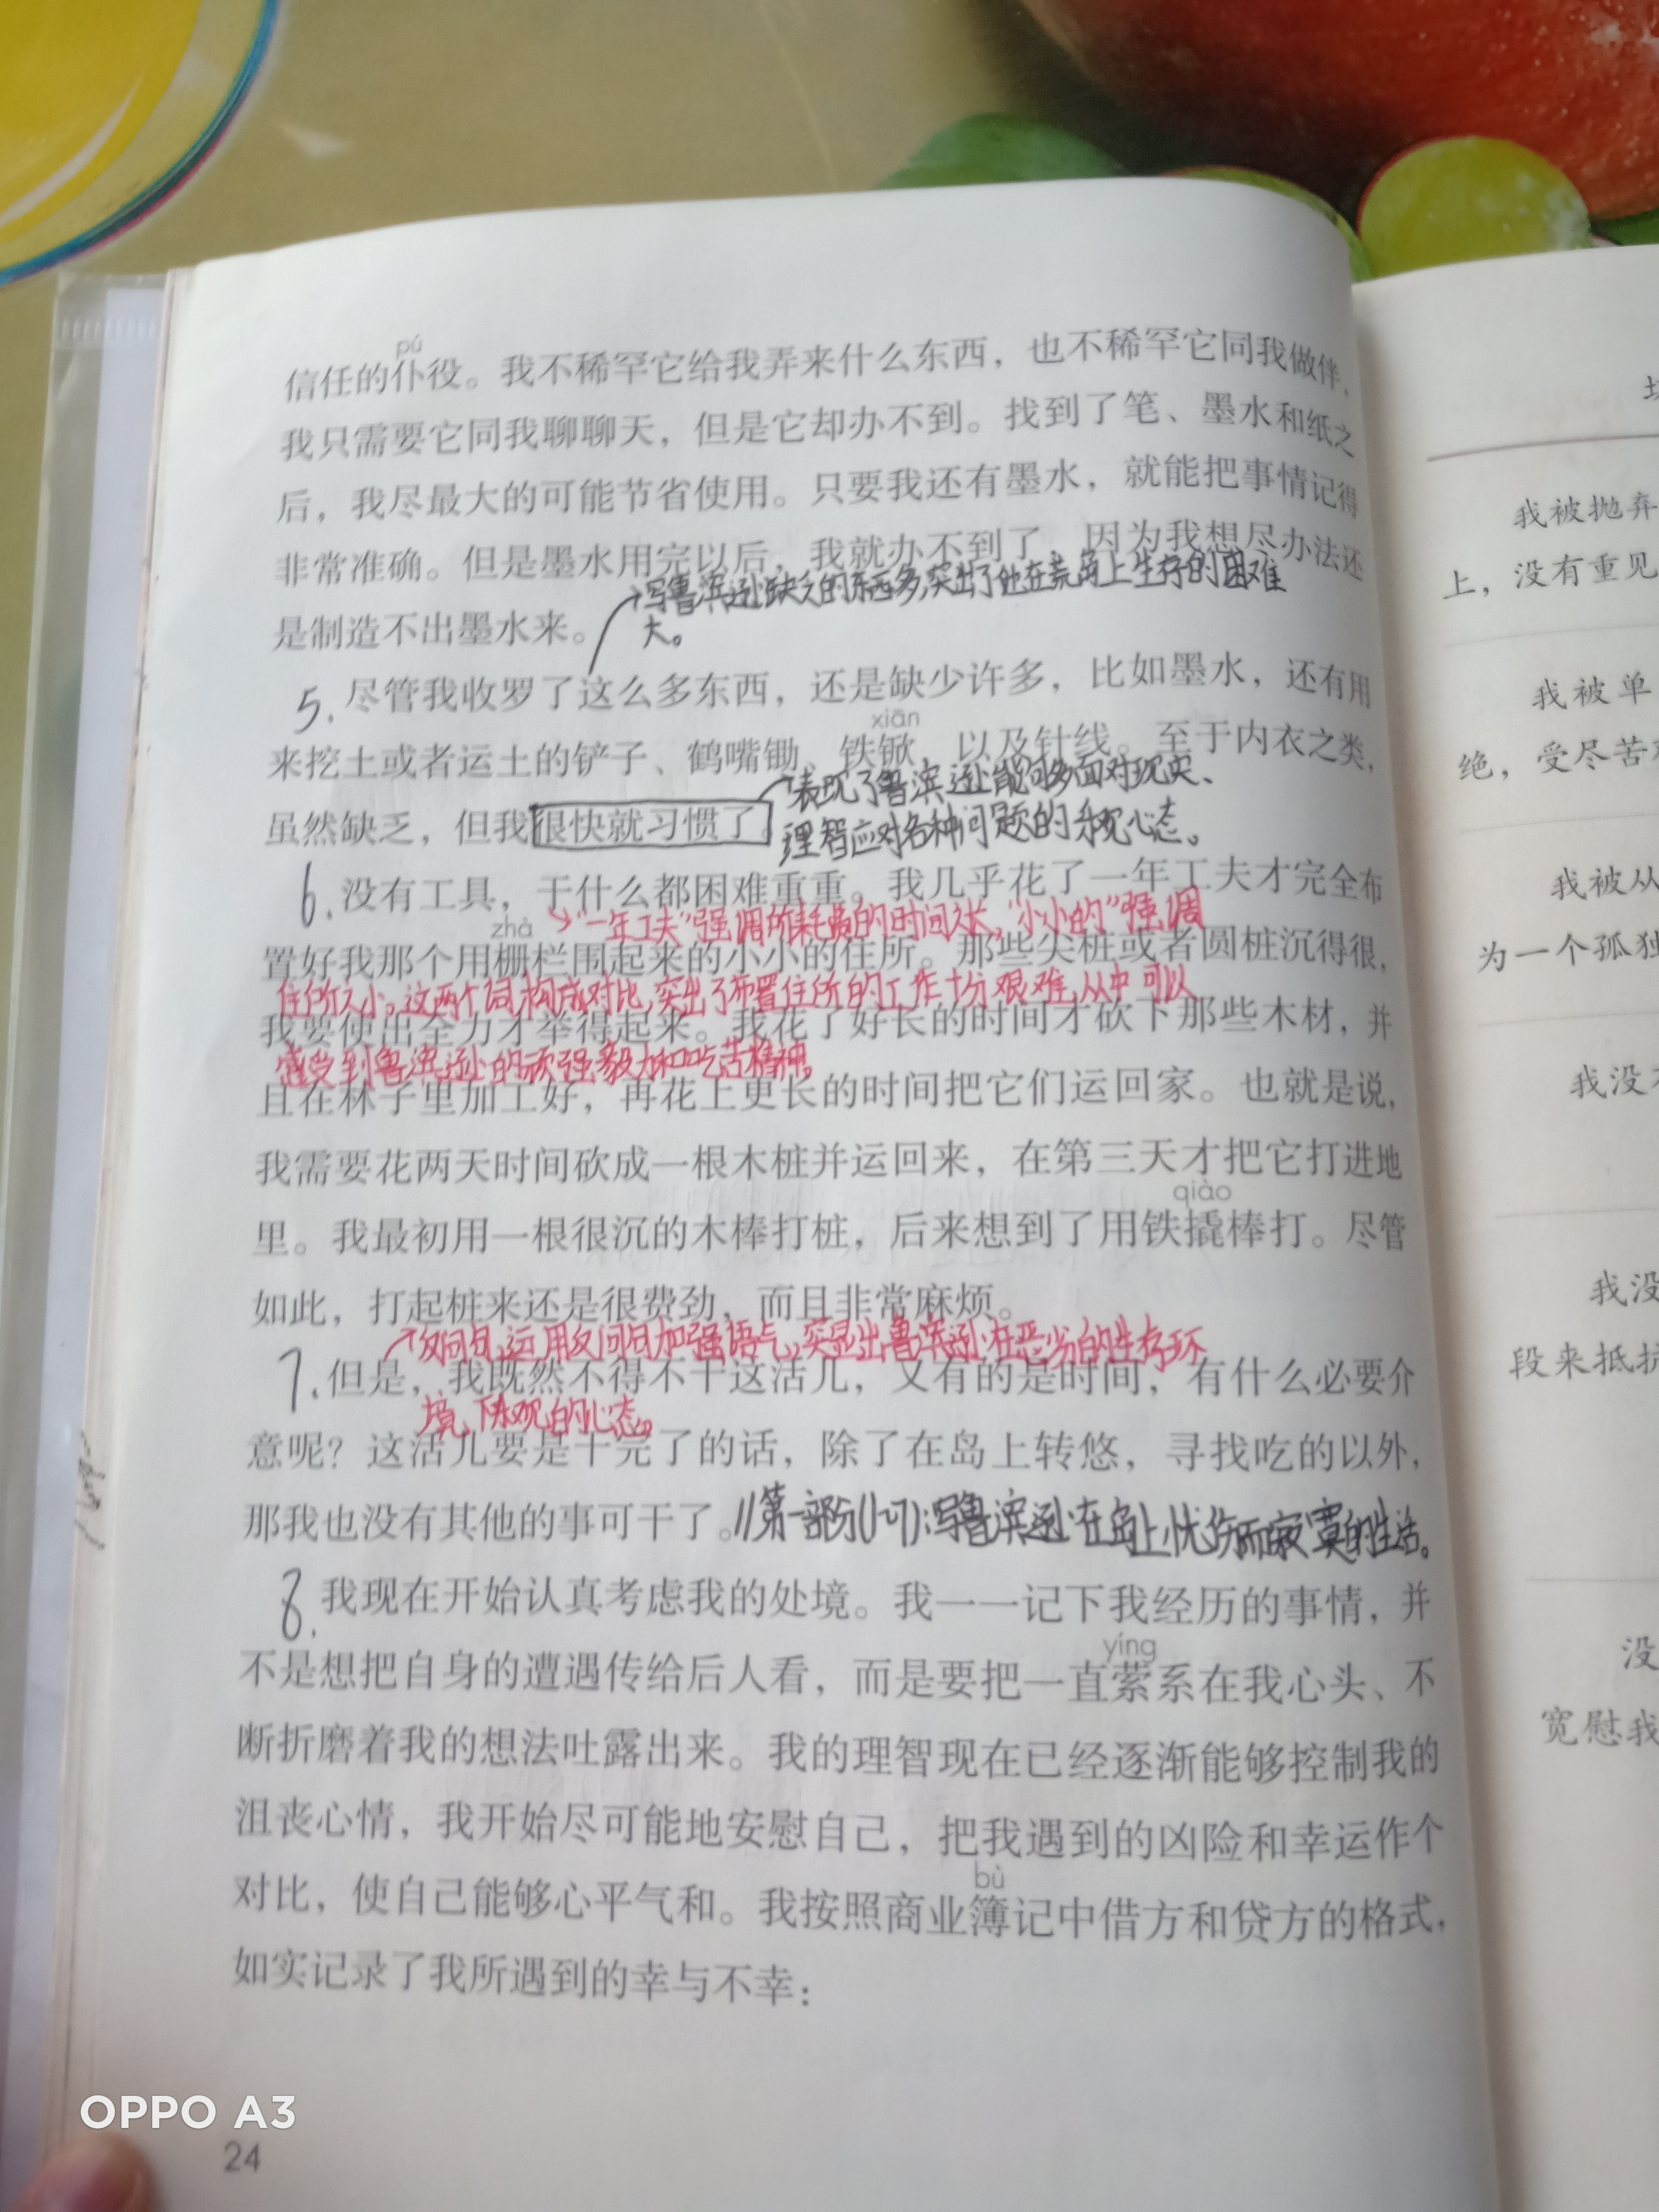 pú
信任的仆役。我不稀罕它给我弄来什么东西，也不稀罕它同我做伴，
我只需要它同我聊聊天，但是它却办不到。找到了笔、墨水和纸之
后，我尽最大的可能节省使用。只要我还有墨水，就能把事情记得
非常准确。但是墨水用完以后，我就办不到了，因为我想尽办法还
写鲁滨逊缺乏的东西多,突出了他在荒岛上生存的困难
是制造不出墨水来。
大。
5.尽管我收罗了这么多东西，还是缺少许多，比如墨水，还有用
xiān
来挖土或者运土的铲子、鹤嘴锄、铁锨，以及针线。至于内衣之类，
表现了鲁滨逊能够面对现实、
虽然缺乏，但我很快就习惯了。
理智应对各种问题的乐观心态。
6.没有工具，干什么都困难重重。我几乎花了一年工夫才完全布
zhà
“一年工夫”强调所耗费的时间之长,“小小的”强调
置好我那个用栅栏围起来的小小的住所。那些尖桩或者圆桩沉得很，
住所之小。这两个词构成对比,突出了布置住所的工作十分艰难,从中可以
我要使出全力才举得起来。我花了好长的时间才砍下那些木材，并
感受到鲁滨逊的顽强毅力和吃苦精神。
且在林子里加工好，再花上更长的时间把它们运回家。也就是说，
我需要花两天时间砍成一根木桩并运回来，在第三天才把它打进地
qiào
里。我最初用一根很沉的木棒打桩，后来想到了用铁撬棒打。尽管
如此，打起桩来还是很费劲，而且非常麻烦。
反问句,运用反问句加强语气,突显出鲁滨逊在恶劣的生存环
7.但是，我既然不得不干这活儿，又有的是时间，有什么必要介
境下乐观的心态。
意呢？这活儿要是干完了的话，除了在岛上转悠，寻找吃的以外，
那我也没有其他的事可干了。//第一部分(1-7):写鲁滨逊在岛上忧伤而寂寞的生活。
8.我现在开始认真考虑我的处境。我一一记下我经历的事情，并
yíng
不是想把自身的遭遇传给后人看，而是要把一直萦系在我心头、不
断折磨着我的想法吐露出来。我的理智现在已经逐渐能够控制我的
沮丧心情，我开始尽可能地安慰自己，把我遇到的凶险和幸运作个
bù
对比，使自己能够心平气和。我按照商业簿记中借方和贷方的格式，
如实记录了我所遇到的幸与不幸：
24
我被抛弃
上，没有重见
我被单
绝，受尽苦
我被从
为一个孤独
我没
我没
段来抵抗
没
宽慰我
OPPO A3